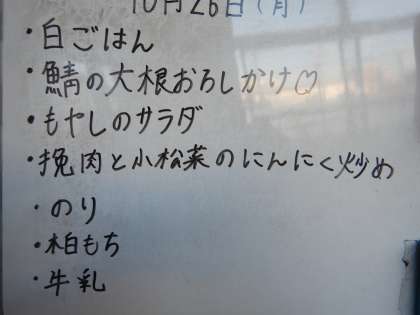 10月26日(月)
・白ごはん
・鯖の大根おろしかけ♡
・もやしのサラダ
・挽肉と小松菜のにんにく炒め
・のり
・柏もち
・牛乳